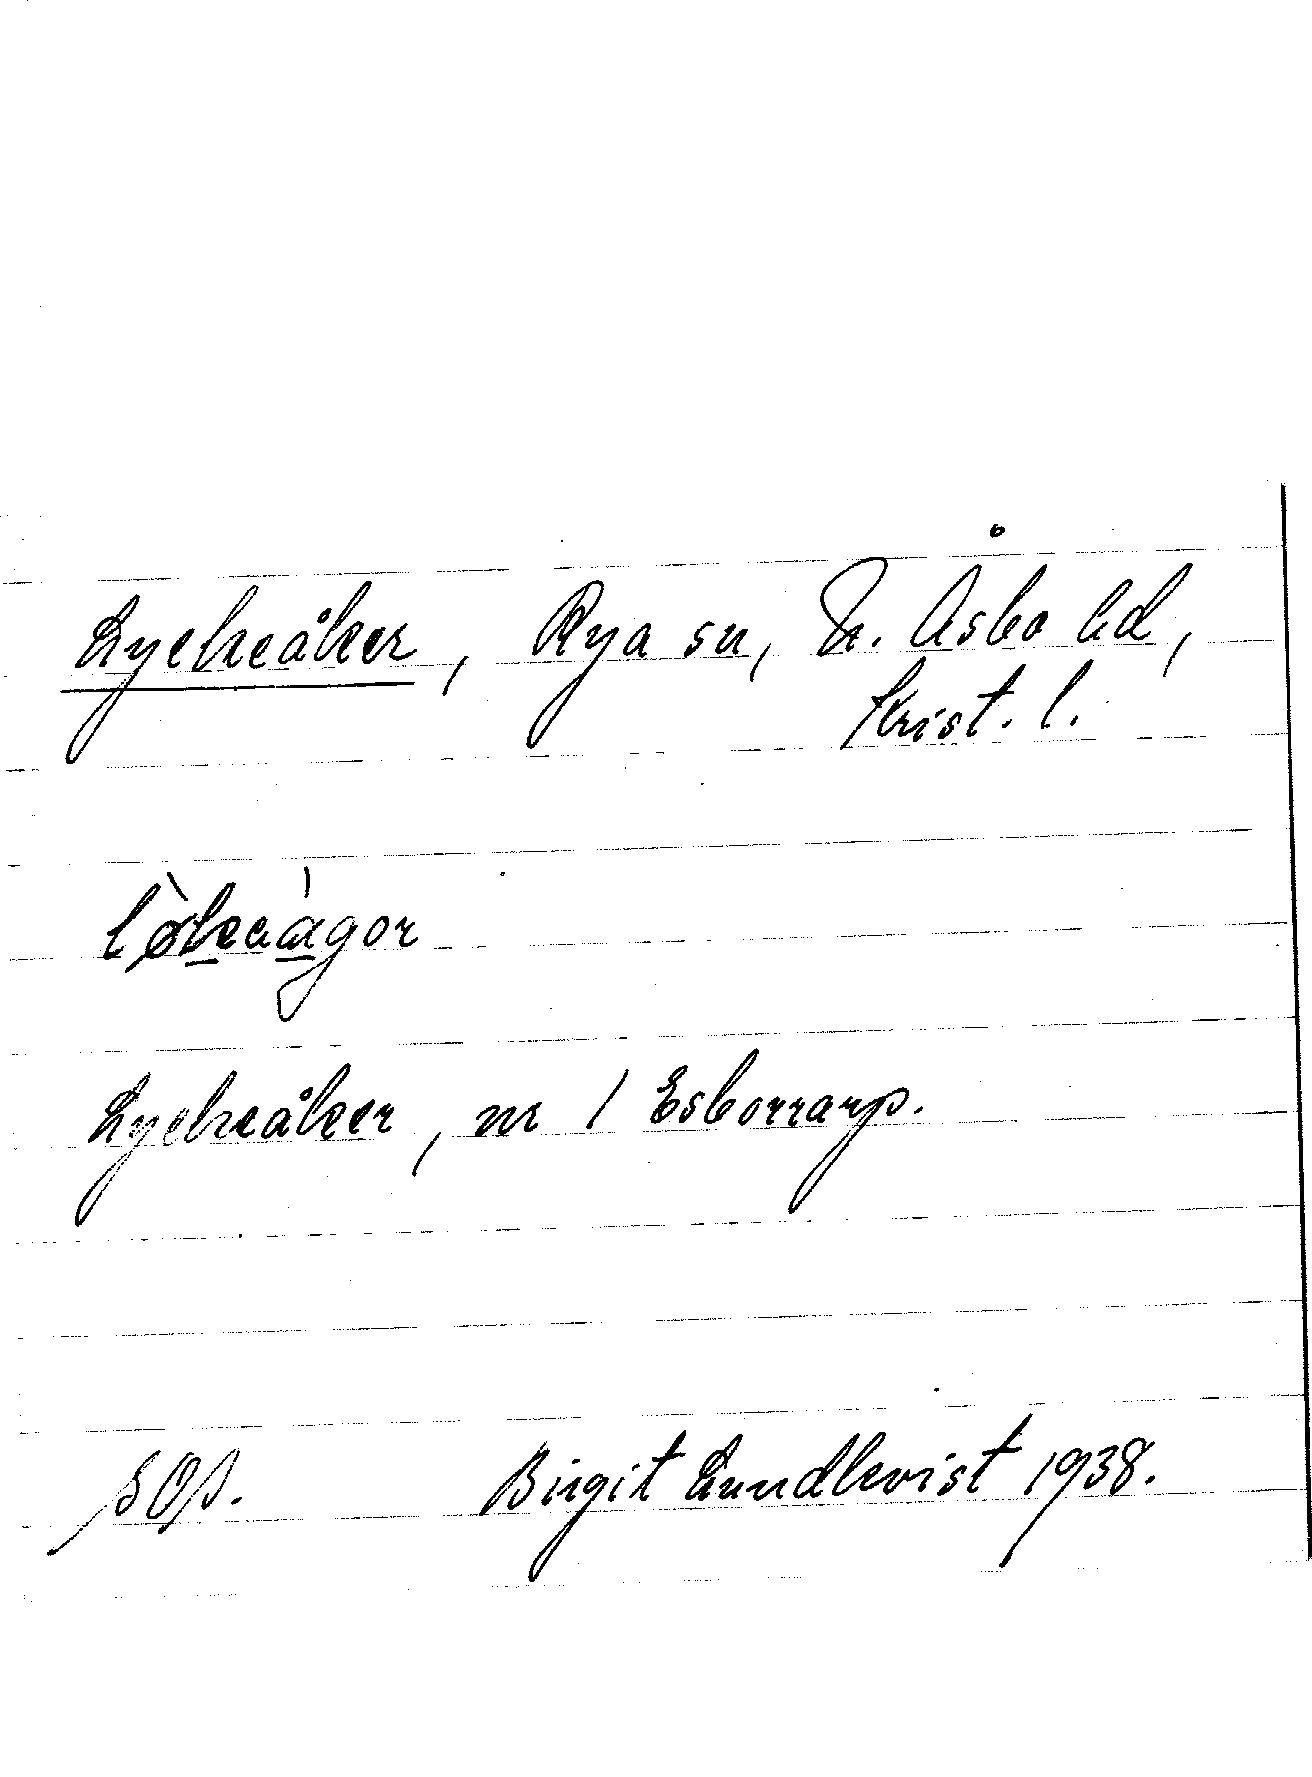 Lyckeåker, Rya sn, N. Åsbo hd,
Krist. l.
Lyckeåker, nr 1 Esborrarp.
SOA. Birgit Lundkvist 1938.